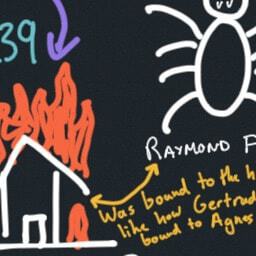 39
RAYMOND
Was bound to the
like how
bound to Agnes